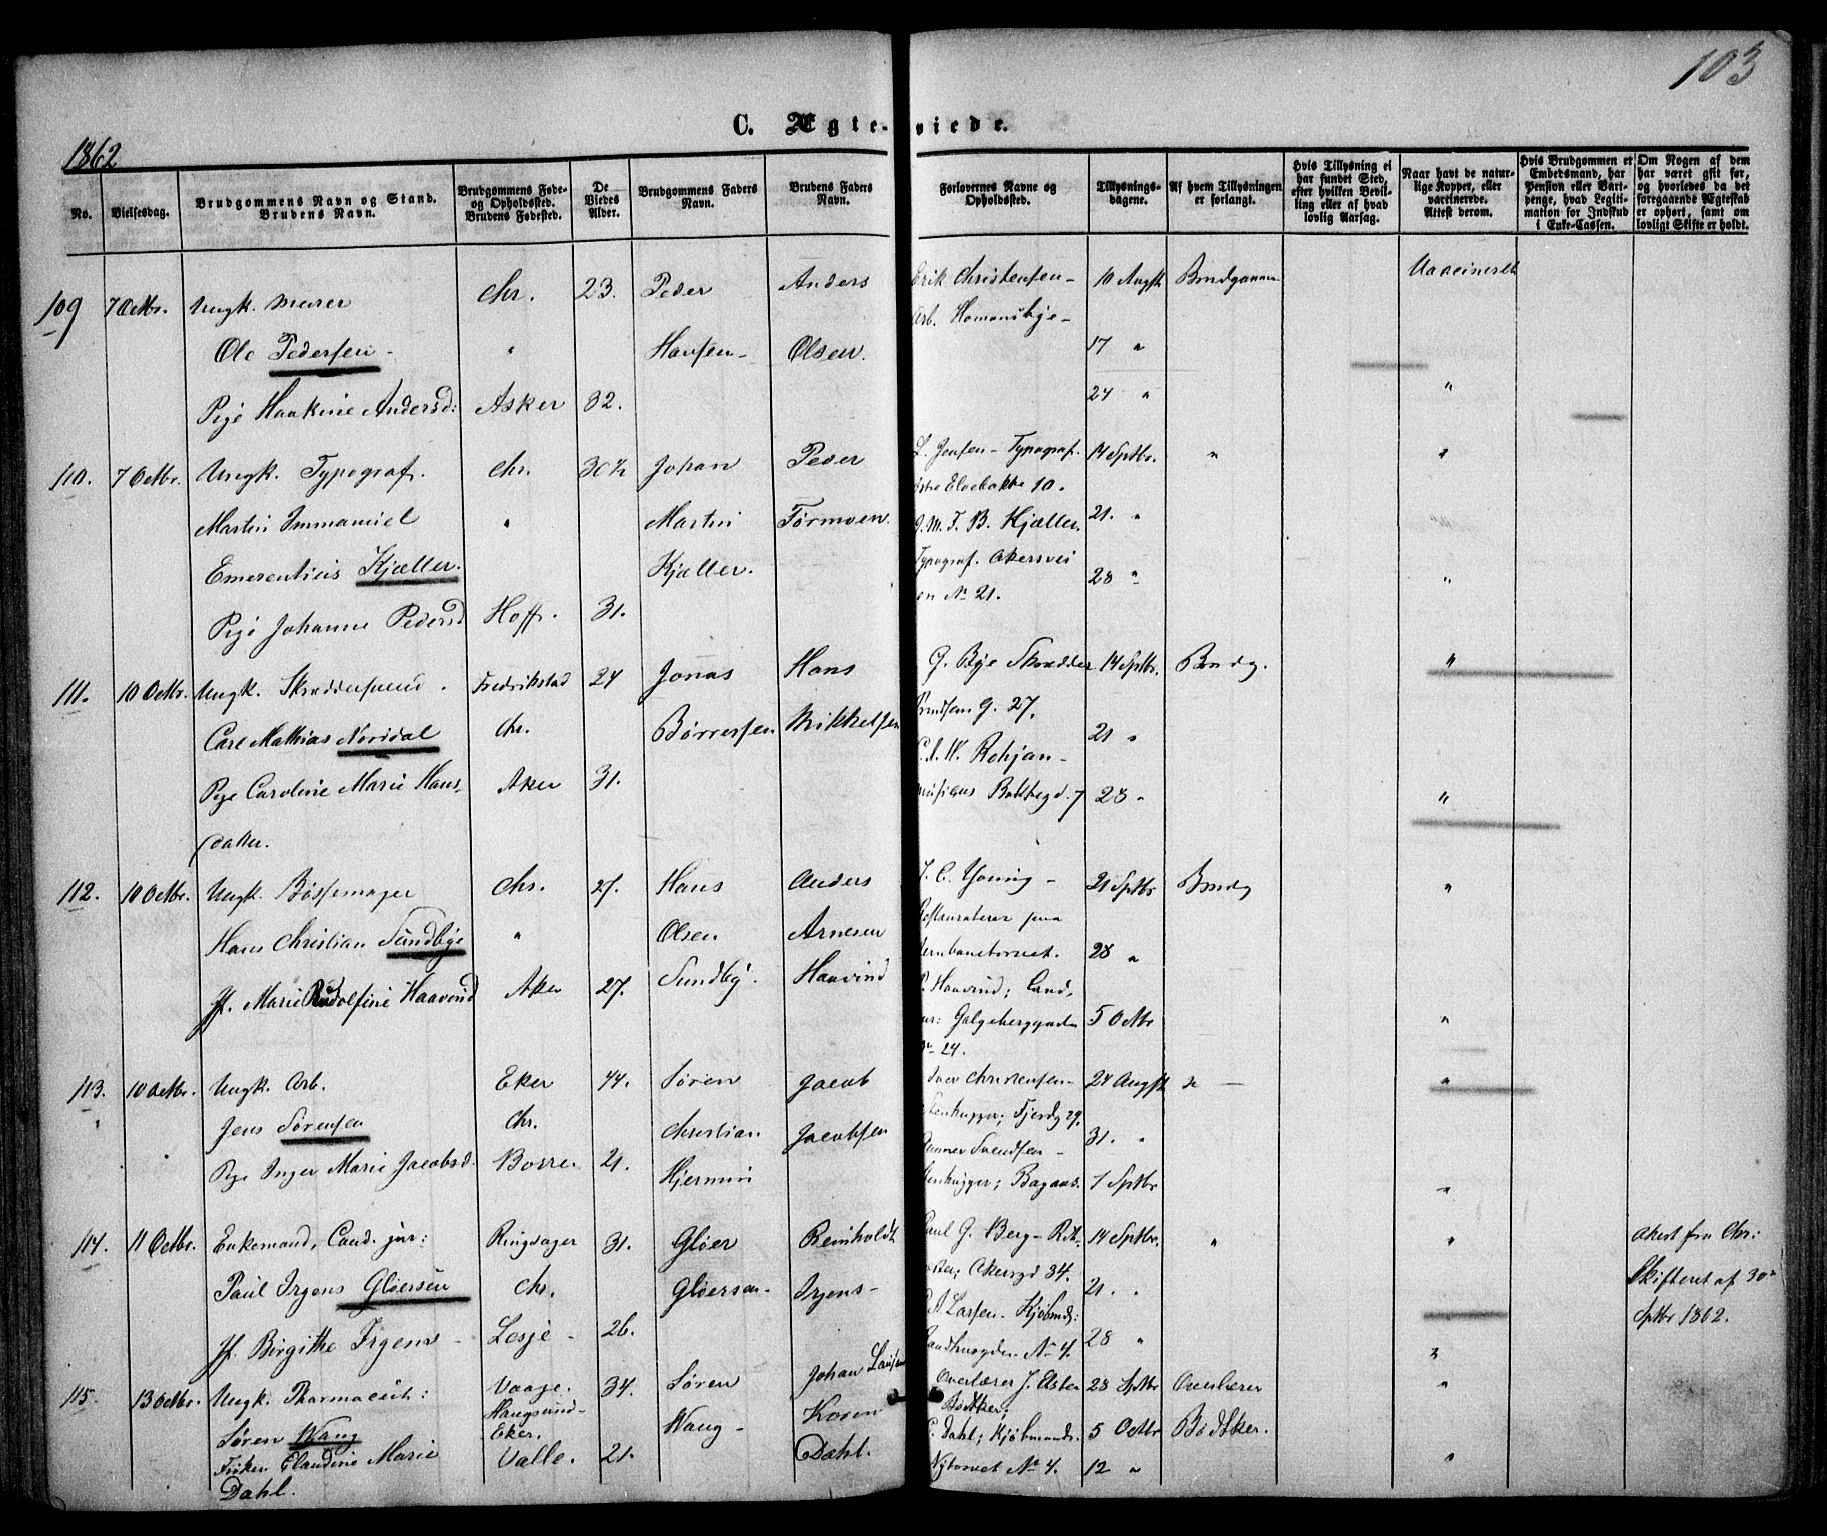 103
C. Ægte-viede.
1862
No.
Vielsesdag.
Brudgommens Navn og Stand.
Brudens Navn.
Brudgommens Føde-
og Opholdssted.
Brudens Fødested.
De
Viedes
Alder.
Brudgommens Faders
Navn.
Brudens Faders
Navn.
Forlovernes Navne og
Opholdssted.
Tillysnings-
dagene.
Af hvem Tillysningen
er forlangt.
Hvis Tillysning ei
har fundet Sted,
efter hvilken Bevil-
ling eller af hvad
lovlig Aarsag.
Naar havt de natur-
lige Kopper, eller
vaccinerede.
Attest derom.
Hvis Brudgommen er
Embedsmand, har
Pension eller Vart-
penge, hvad Legiti-
mation for Indskud
i Enke-Cassen.
Om Nogen af dem
har været gift før,
og hvorledes da det
foregaaende Ægteskab
er ophørt, samt om
lovligt Skifte er holdt.
109 7 Octbr. Ungk. Murer Chr. 23. Peder Anders Erik Christensen- 10 Augst Brudgommen Vaccineret
Arb. Homansbye-
Ole Pedersen - " Hansen- Olsen. 17 "
Pige Haakine Andersd: Asker 32. 24 " "
110. 7 Octbr. Ungk. Typograf. Chr. 30½ Johan Peder L. Jensen- Typograf. 14 Septbr. " "
Østre Elvebakke 10.
Martin Immanuel " Martin Tørmoen. J. M. F. B. Kjæller. 21. "
Emerentius Kjæller. Kjæller. Typograf. Akersvei 28 " "
en No 21.
Pige Johanne Pedersd Hoff. 31.
111. 10 Octbr. Ungk. Skræddersvend. Fredrikstad 24 Jonas Hans G. Bye Skrædder 14 Septbr. Brudg. "
G. 27.
Carl Mathias Nordal Chr. Børresen Mikkelsen 21 "
C. A. W. Rohjan-
Pige Caroline Marie Hans- Aker 31. 28 " "
datter.
112. 10 Octbr. Ungk. Bøssemager Chr. 27. Hans Anders J. C. Young - 21 Septbr Brudg "
Hans Christian Sundbye " Olsen Arnesen Jernbanetorvet. 28 "
Jf. Marie Rudolfine Haavind Aker 27. Sundby. Haavind P. Haavind; Cand.
jur: Galgeberggaden 5 Octbr "
No 24.
113. 10 Octbr. Ungk. Arb. Eker 44. Søren Jacob Iver Christensen- 24 Augst "
Stenhugger; Fjerdg 29.
Jens Sørensen Chr. Christian Jacobsen 31. "
Gunner Svendsen -
Pige Inger Marie Jacobsd. Borre 21. Hjermin Stenhugger; 7 Septbr "
114. 11 Octbr. Enkemand, Cand. jur: Ringsager 31. Gløer Reinholdt Paul G. Berg- 14 Septbr. " " Attest fra Chr:
Paul Irgens Gløersen Chr. Gløersen- Irgens- Akersgd 34. 21. " Skifteret af 30te
P. A. Larsen- Kjøbmd: Septbr 1862.
Jf. Birgithe Irgens - Lesje - 26. Raadhusgaden No 4. 28 " "
115. 13 Octbr. Ungk. Pharmaceut: Vaage. 34. Søren Johan Overlærer J. Aster 28 Septbr Overlærer "
Haugsund- Bødtker;
Søren Wang Eker. Wang- Koren C. Dahl; Kjøbmand. 5 Octbr Bødtker.
Frøken Claudine Marie Valle. 21. Dahl. Nytorvet No 4. 12 " "
Dahl.